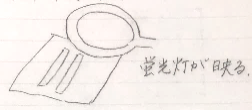 蛍光灯が映る